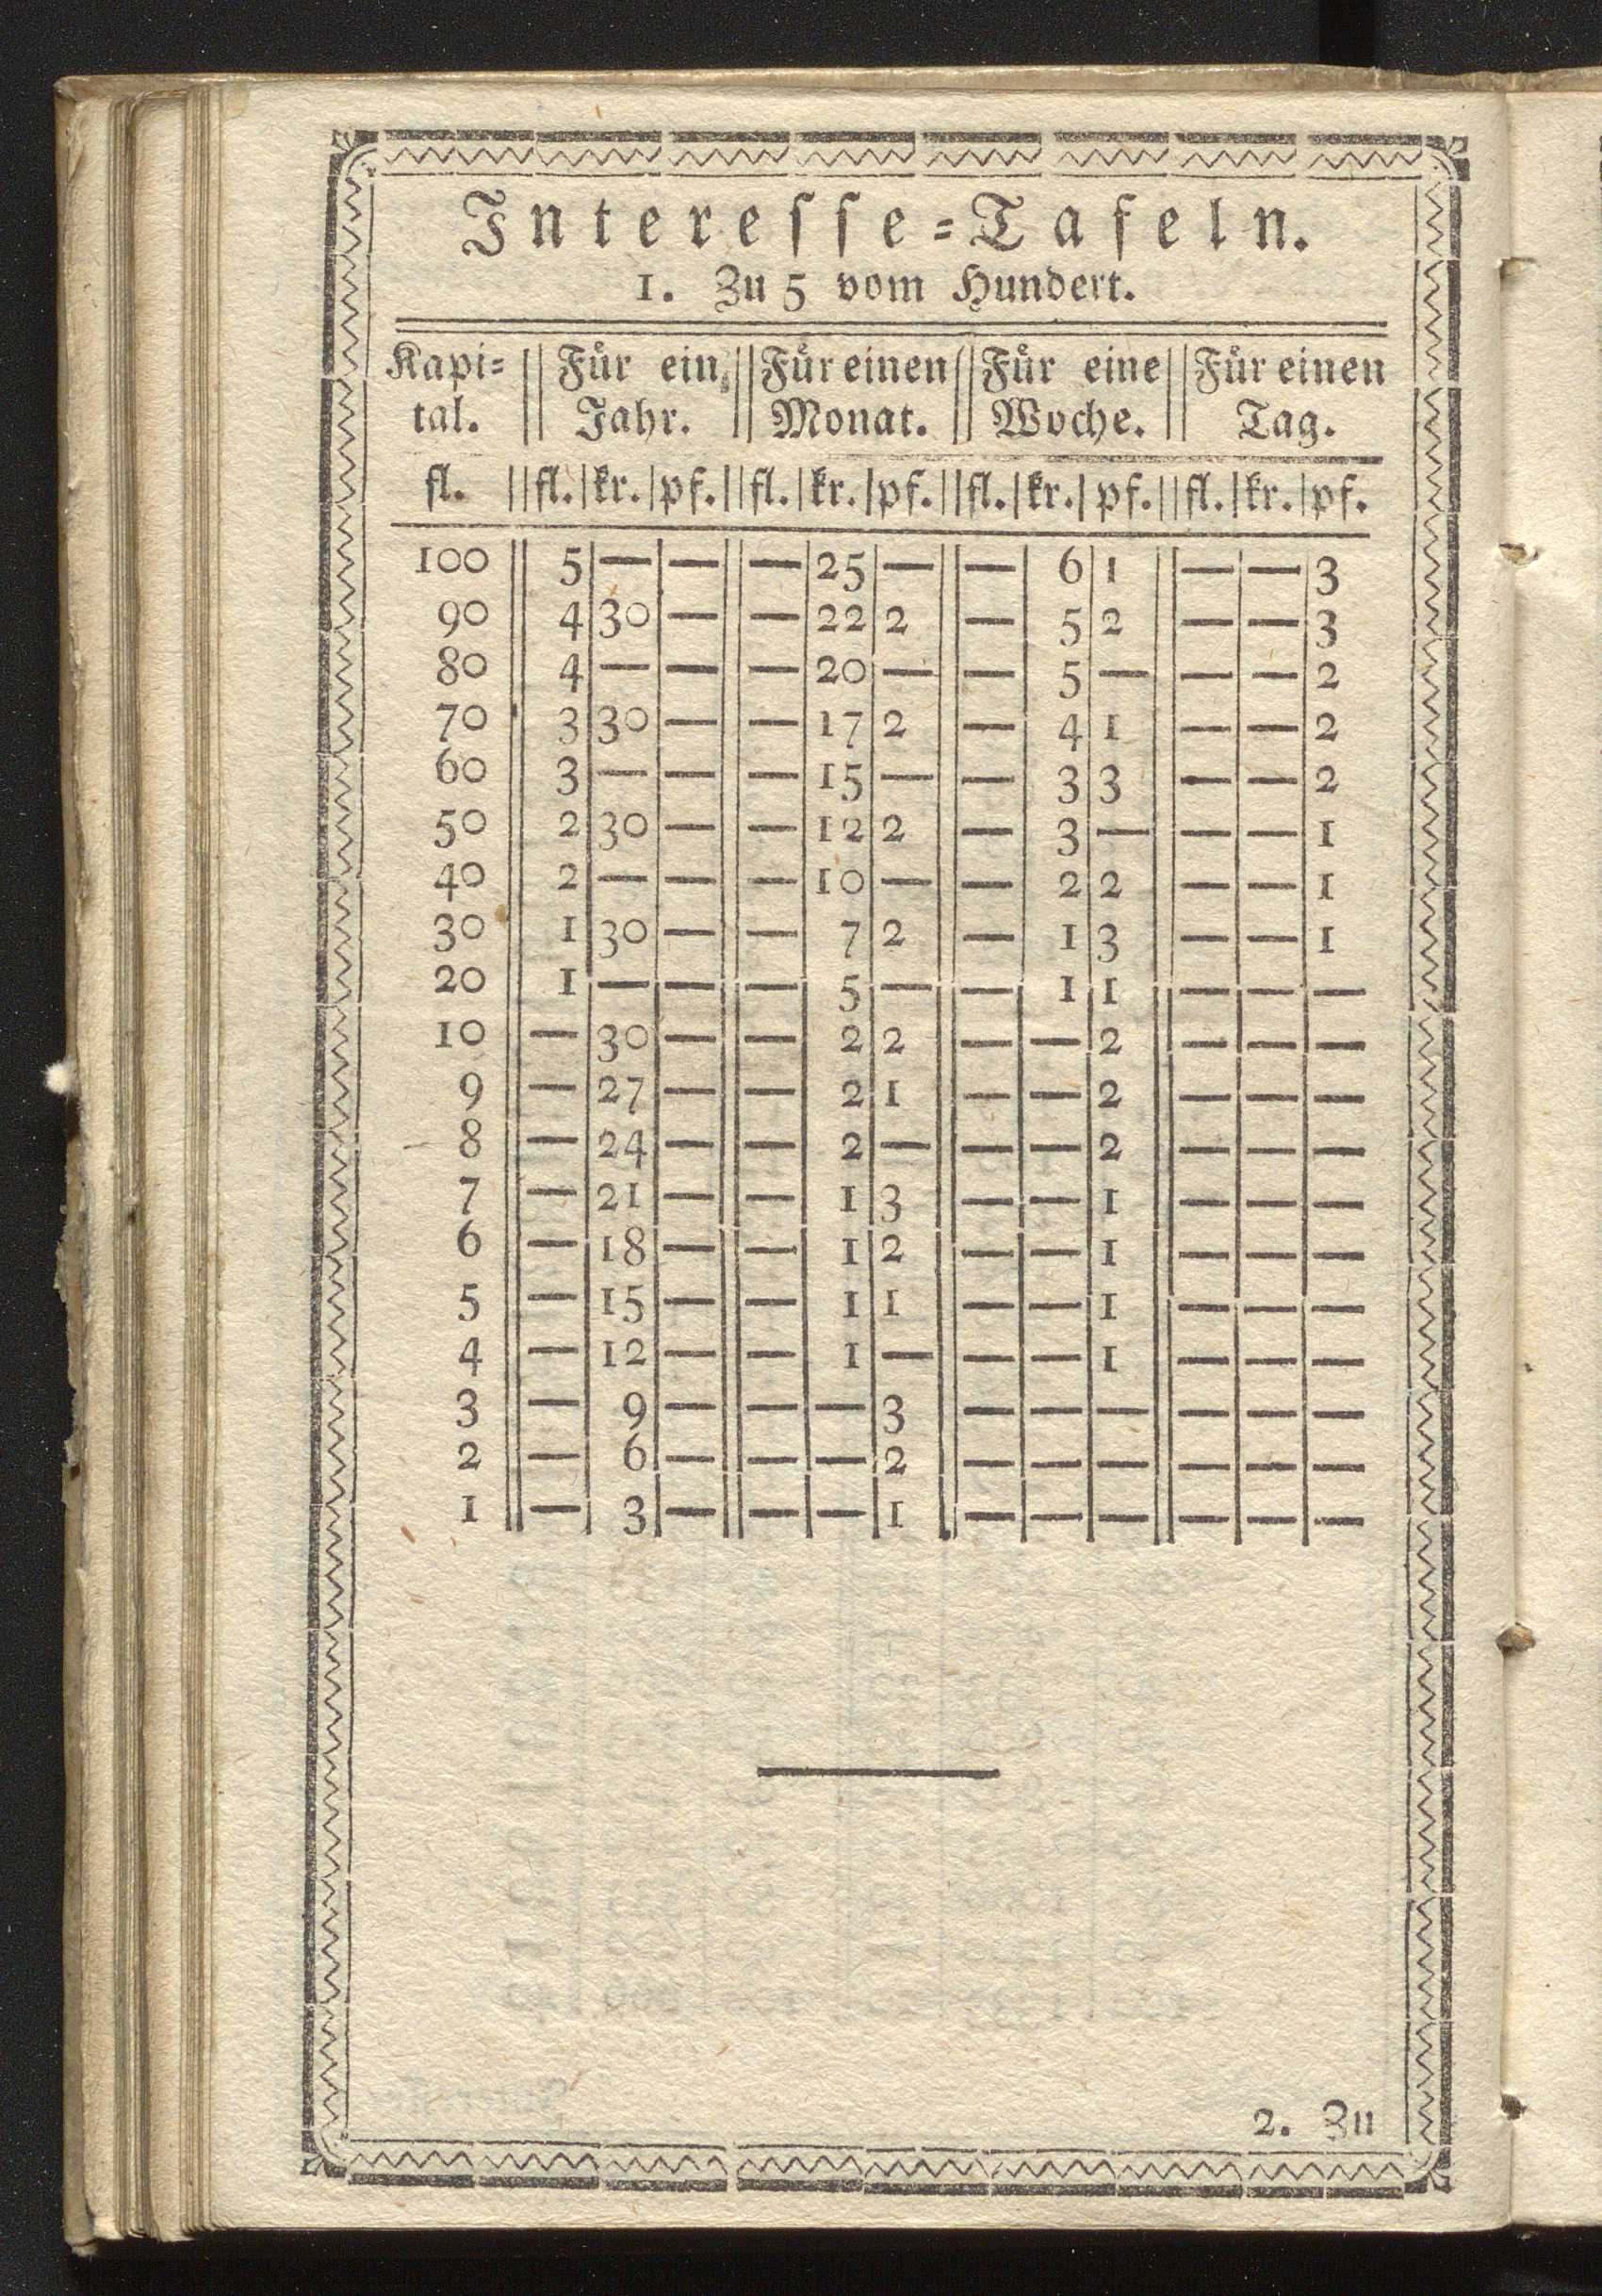 Intereſſe=Tafeln.
1. Zu 5 vom Hundert.
Kapi= || Für ein || Für einen || Für eine || Für einen
tal. || Jahr. || Monat. || Woche. || Tag.
fl. || fl. | kr. | pf. || fl. | kr. | pf. || fl. | kr. | pf. || fl. | kr. | pf.
100 || 5 | — | — || — | 25 | — || — | 6 | 1 || — | — | 3
90 || 4 | 30 | — || — | 22 | 2 || — | 5 | 2 || — | — | 3
80 || 4 | — | — || — | 20 | — || — | 5 | — || — | — | 2
70 || 3 | 30 | — || — | 17 | 2 || — | 4 | 1 || — | — | 2
60 || 3 | — | — || — | 15 | — || — | 3 | 3 || — | — | 2
50 || 2 | 30 | — || — | 12 | 2 || — | 3 | — || — | — | 1
40 || 2 | — | — || — | 10 | — || — | 2 | 2 || — | — | 1
30 || 1 | 30 | — || — | 7 | 2 || — | 1 | 3 || — | — | 1
20 || 1 | — | — || — | 5 | — || — | 1 | 1 || — | — | —
10 || — | 30 | — || — | 2 | 2 || — | — | 2 || — | — | —
9 || — | 27 | — || — | 2 | 1 || — | — | 2 || — | — | —
8 || — | 24 | — || — | 2 | — || — | — | 2 || — | — | —
7 || — | 21 | — || — | 1 | 3 || — | — | 1 || — | — | —
6 || — | 18 | — || — | 1 | 2 || — | — | 1 || — | — | —
5 || — | 15 | — || — | 1 | 1 || — | — | 1 || — | — | —
4 || — | 12 | — || — | 1 | — || — | — | 1 || — | — | —
3 || — | 9 | — || — | — | 3 || — | — | — || — | — | —
2 || — | 6 | — || — | — | 2 || — | — | — || — | — | —
1 || — | 3 | — || — | — | 1 || — | — | — || — | — | —
2. Zu